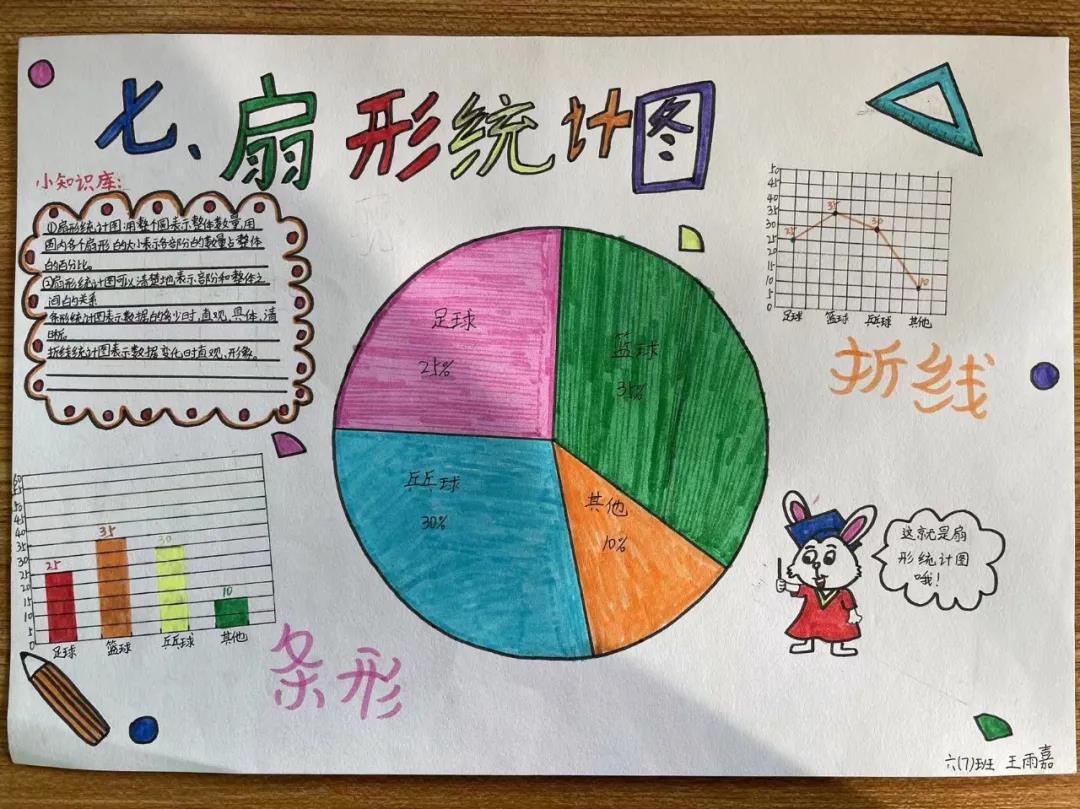 七、扇形统计图
小知识库:
①扇形统计图:用整个圆表示整体数量,用
圆内各个扇形的大小表示各部分的数量占整体
的百分比。
②扇形统计图可以清楚地表示部分和整体之
间的关系
条形统计图表示数据的多少时,直观,具体,清
晰。
折线统计图表示数据变化时直观,形象。
足球
25%
篮球
35%
乒乓球
30%
其他
10%
50
45
40
35
30
25
20
15
10
5
0
25
35
30
10
足球 篮球 乒乓球 其他
折线
60
55
50
45
40
35
30
25
20
15
10
5
0
25
35
30
10
足球 篮球 乒乓球 其他
条形
这就是扇
形统计图
哦!
六(7)班 王雨嘉